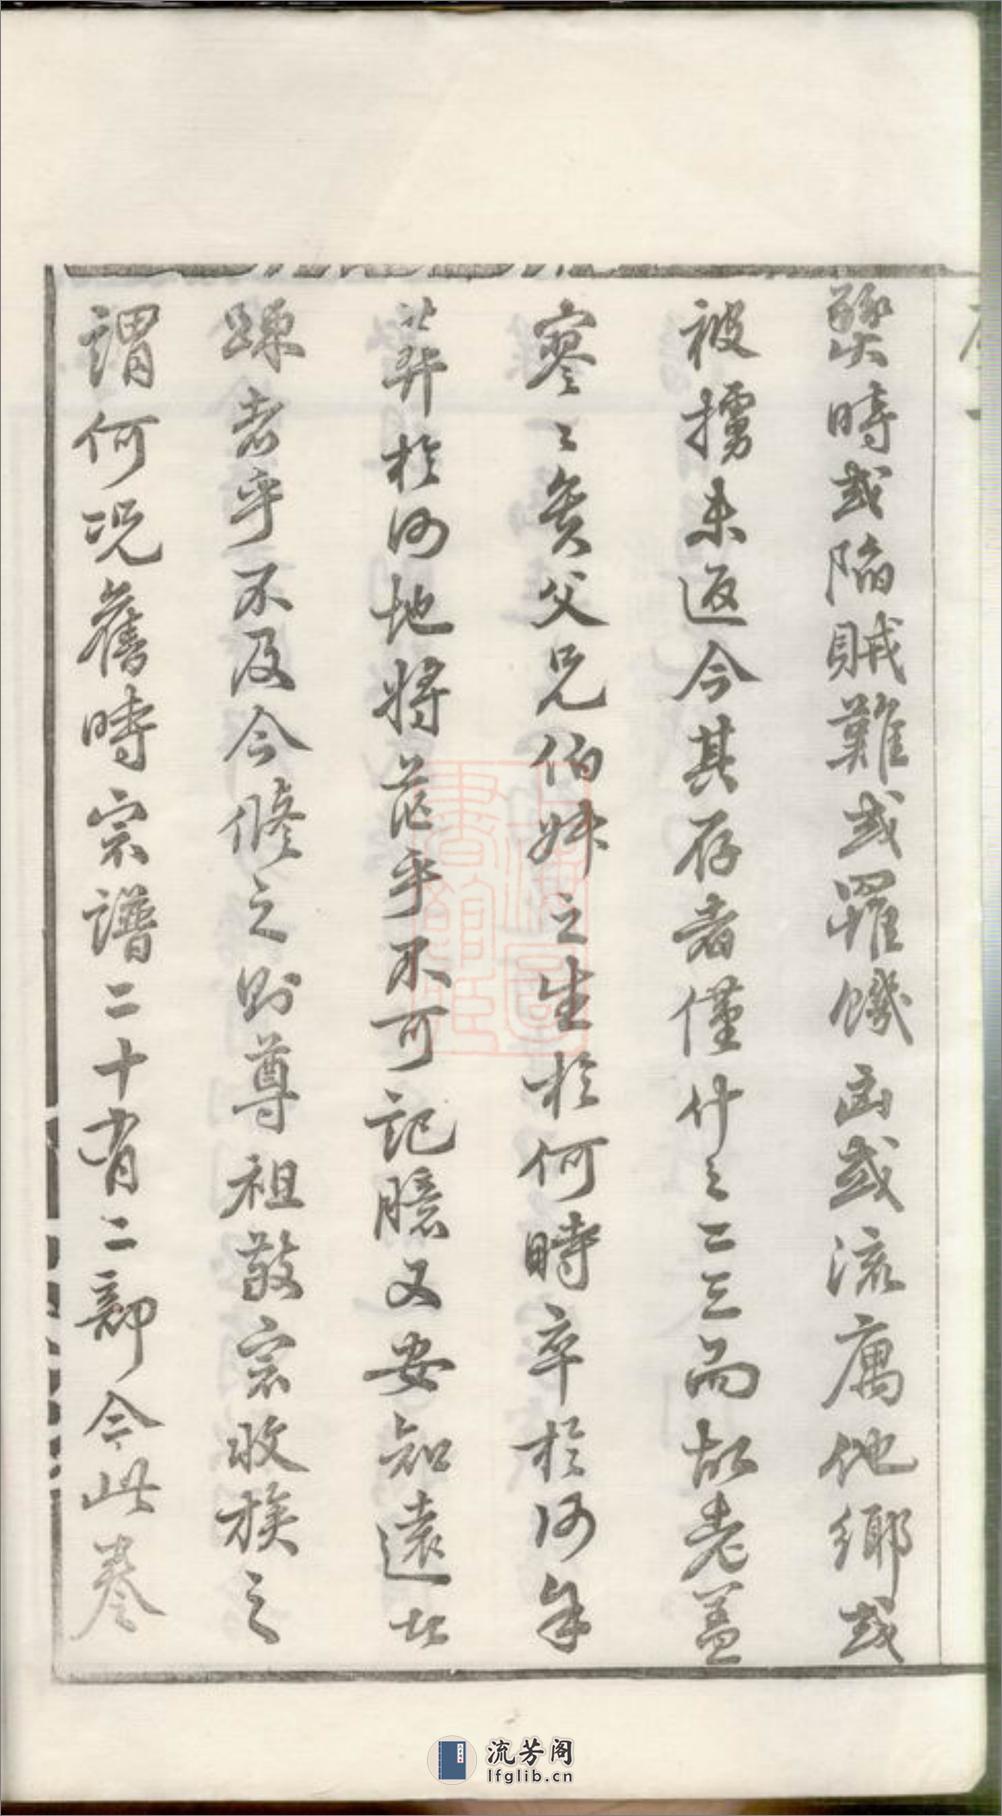 獘時或陷賊難或罹饑凶或流寓他鄉或
被擄未返今其存者僅什之二三而故老蓋
寥寥矣父兄伯姊之生於何時卒於何年
葬於何地將茫乎不可記臆又安知遠且
疎者乎不及今修之則尊祖敬宗收族之
謂何况舊時宗譜二十有二部今此卷
流芳阁
lfglib.cn